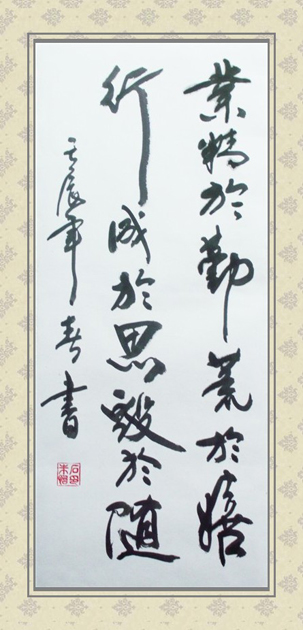 業精於勤荒於嬉
行成於思毀於随
壬辰年春書